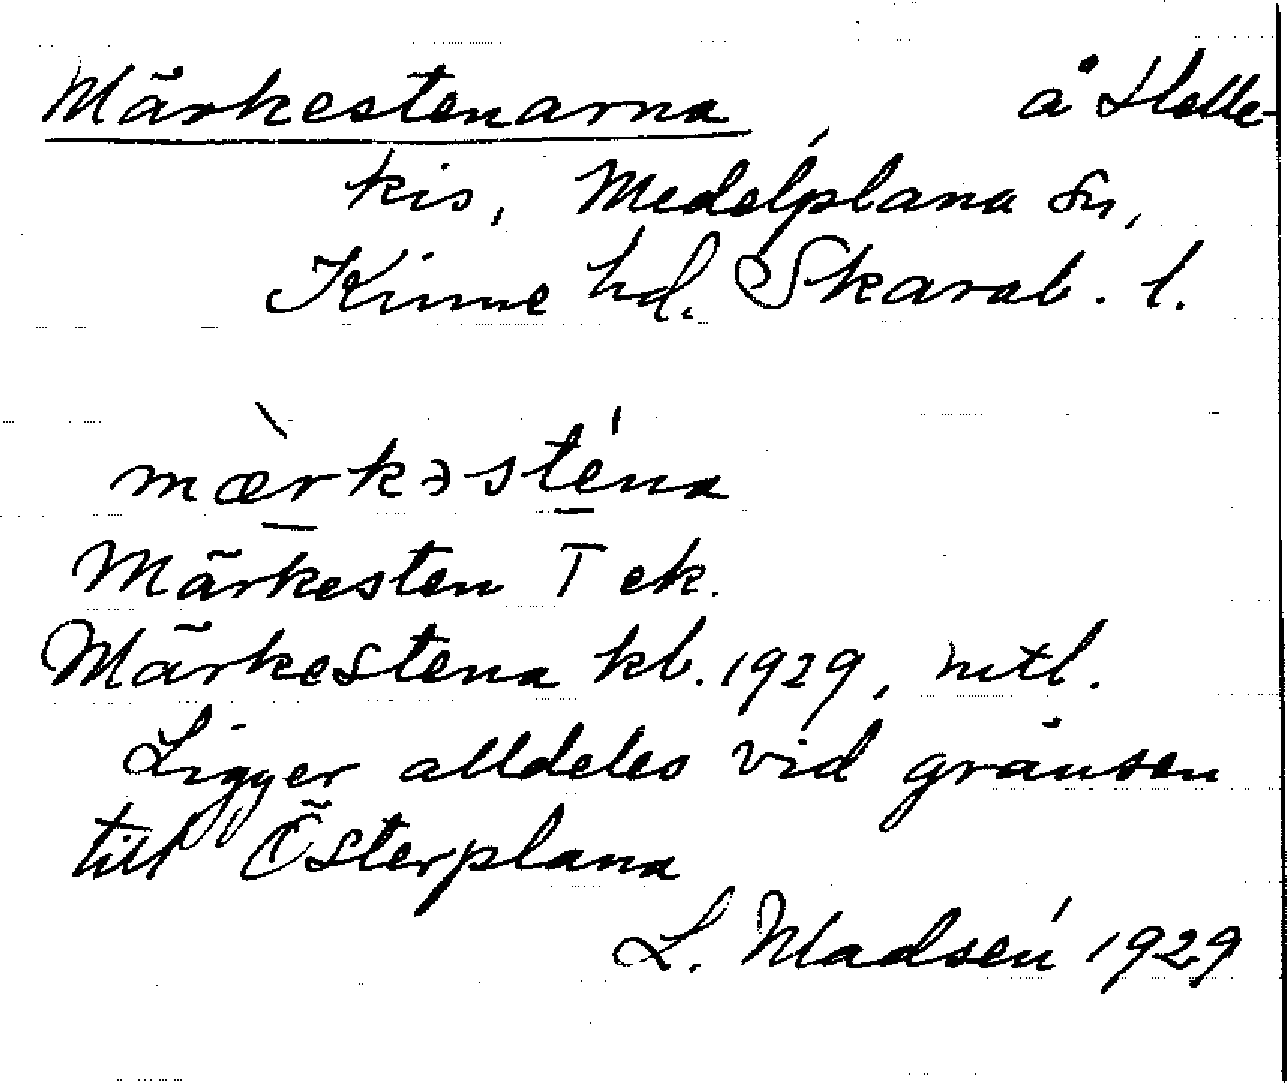 Märkestenarna å Helle-
kis, Medelplana sn,
Kinne hd. Skarab. l.
mæ̀rkəsténa
Märkesten T ek.
Märkestena kb. 1929, mtl.
Ligger alldeles vid gränsen
till Österplana
L. Madsén 1929